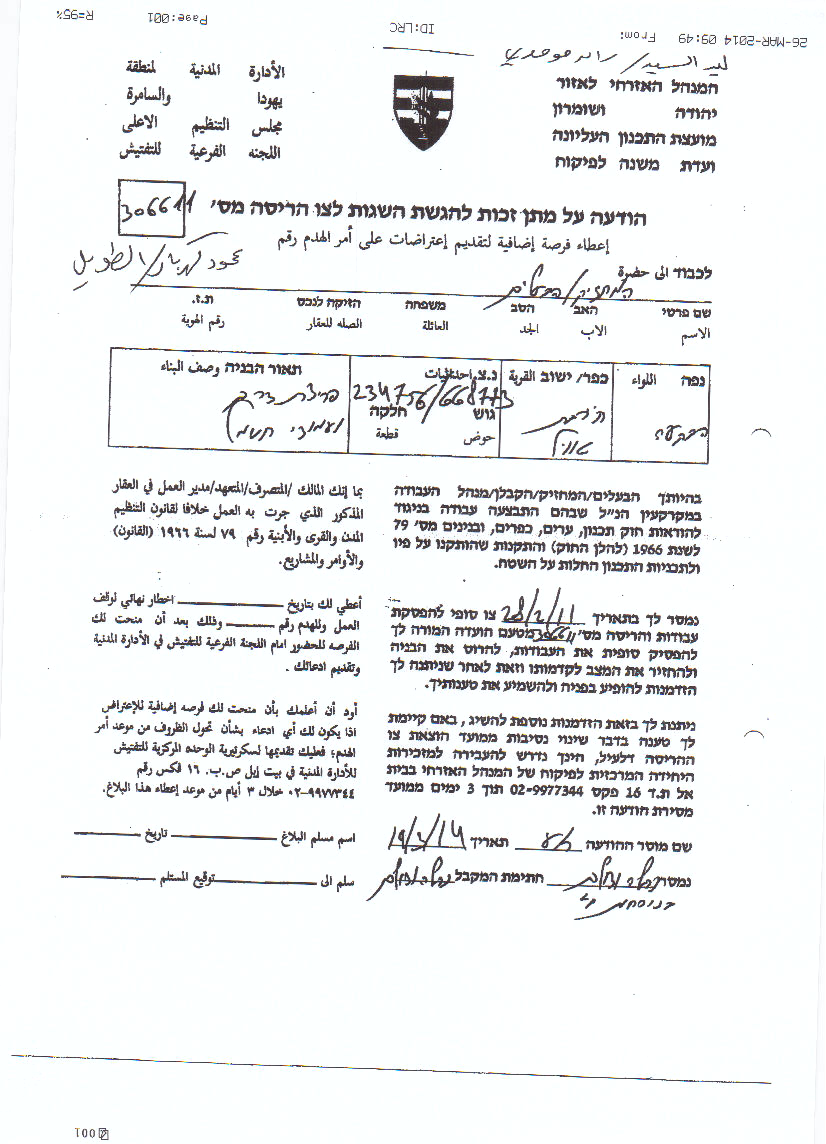 26-MAR-2014 09:49 From: ID:LRC Page:001 R=95%
המנהל האזרחי לאזור
יהודה ושומרון
מועצת התכנון העליונה
ועדת משנה לפיקוח
الأدارة المدنية لمنطقة
يهودا والسامرة
مجلس التنظيم الاعلى
اللجنه الفرعية للتفتيش
הודעה על מתן זכות להגשת השגות לצו הריסה מס' 306611
إعطاء فرصة إضافية لتقديم إعتراضات على أمر الهدم رقم
לכבוד الى حضرة
המחזיק/הבעלים
שם פרטי האב הסב משפחה הזיקה לנכס ת.ז.
الاسم الاب الجد العائلة الصله للعقار رقم الهوية
נפה اللواء כפר/ ישוב القرية נ.צ. احداثيات תאור הבניה وصف البناء
234756/668773
גוש חלקה
حوض قطعة
פריצת דרך
ועמודי חשמל
בהיותך הבעלים/המחזיק/הקבלן/מנהל העבודה
במקרקעין הנ"ל שבהם התבצעה עבודה בניגוד
להוראות חוק תכנון, ערים, כפרים, ובנינים מס' 79
לשנת 1966 (להלן החוק) והתקנות שהותקנו על פיו
ולתכניות התכנון החלות על השטח.
נמסר לך בתאריך 28/2/11 צו סופי להפסקת
עבודות והריסה מס' 306611 מטעם הועדה המורה לך
להפסיק סופית את העבודות, להרוס את הבניה
ולהחזיר את המצב לקדמותו וזאת לאחר שניתנה לך
הזדמנות להופיע בפניה ולהשמיע את טענותיך.
ניתנת לך בזאת הזדמנות נוספת להשיג, באם קיימת
לך טענה בדבר שינוי נסיבות ממועד הוצאת צו
ההריסה דלעיל, הינך נדרש להעבירה למזכירות
היחידה המרכזית לפיקוח של המנהל האזרחי בבית
אל ת.ד 16 פקס 02-9977344 תוך 3 ימים ממועד
מסירת הודעה זו.
שם מוסר ההודעה תאריך
נמסר חתימת המקבל
بما إنك المالك /المتصرف/المتعهد/مدير العمل في العقار
المذكور الذي جرت به العمل خلافا لقانون التنظيم
المدن والقرى والأبنية رقم ٧٩ لسنة ١٩٦٦ (القانون)
والأوامر والمشاريع.
أعطي لك بتاريخ اخطار نهائي لوقف
العمل وللهدم رقم وذلك بعد أن منحت لك
الفرصه للحضور امام اللجنة الفرعية للتفتيش في الأدارة المدنية
وتقديم ادعائك .
أود أن أعلمك بأن منحت لك فرصه إضافية للإعتراض
اذا يكون لك أي ادعاء بشأن تحول الظروف من موعد أمر
الهدم؛ فعليك تقديمها لسكرتيرية الوحده المركزية للتفتيش
للأدارة المدنية في بيت إيل ص.ب. ١٦ فكس رقم
٠٢-٩٩٧٧٣٤٤ خلال ٣ أيام من موعد إعطاء هذا البلاغ.
اسم مسلم البلاغ تاريخ
سلم الى توقيع المستلم
001